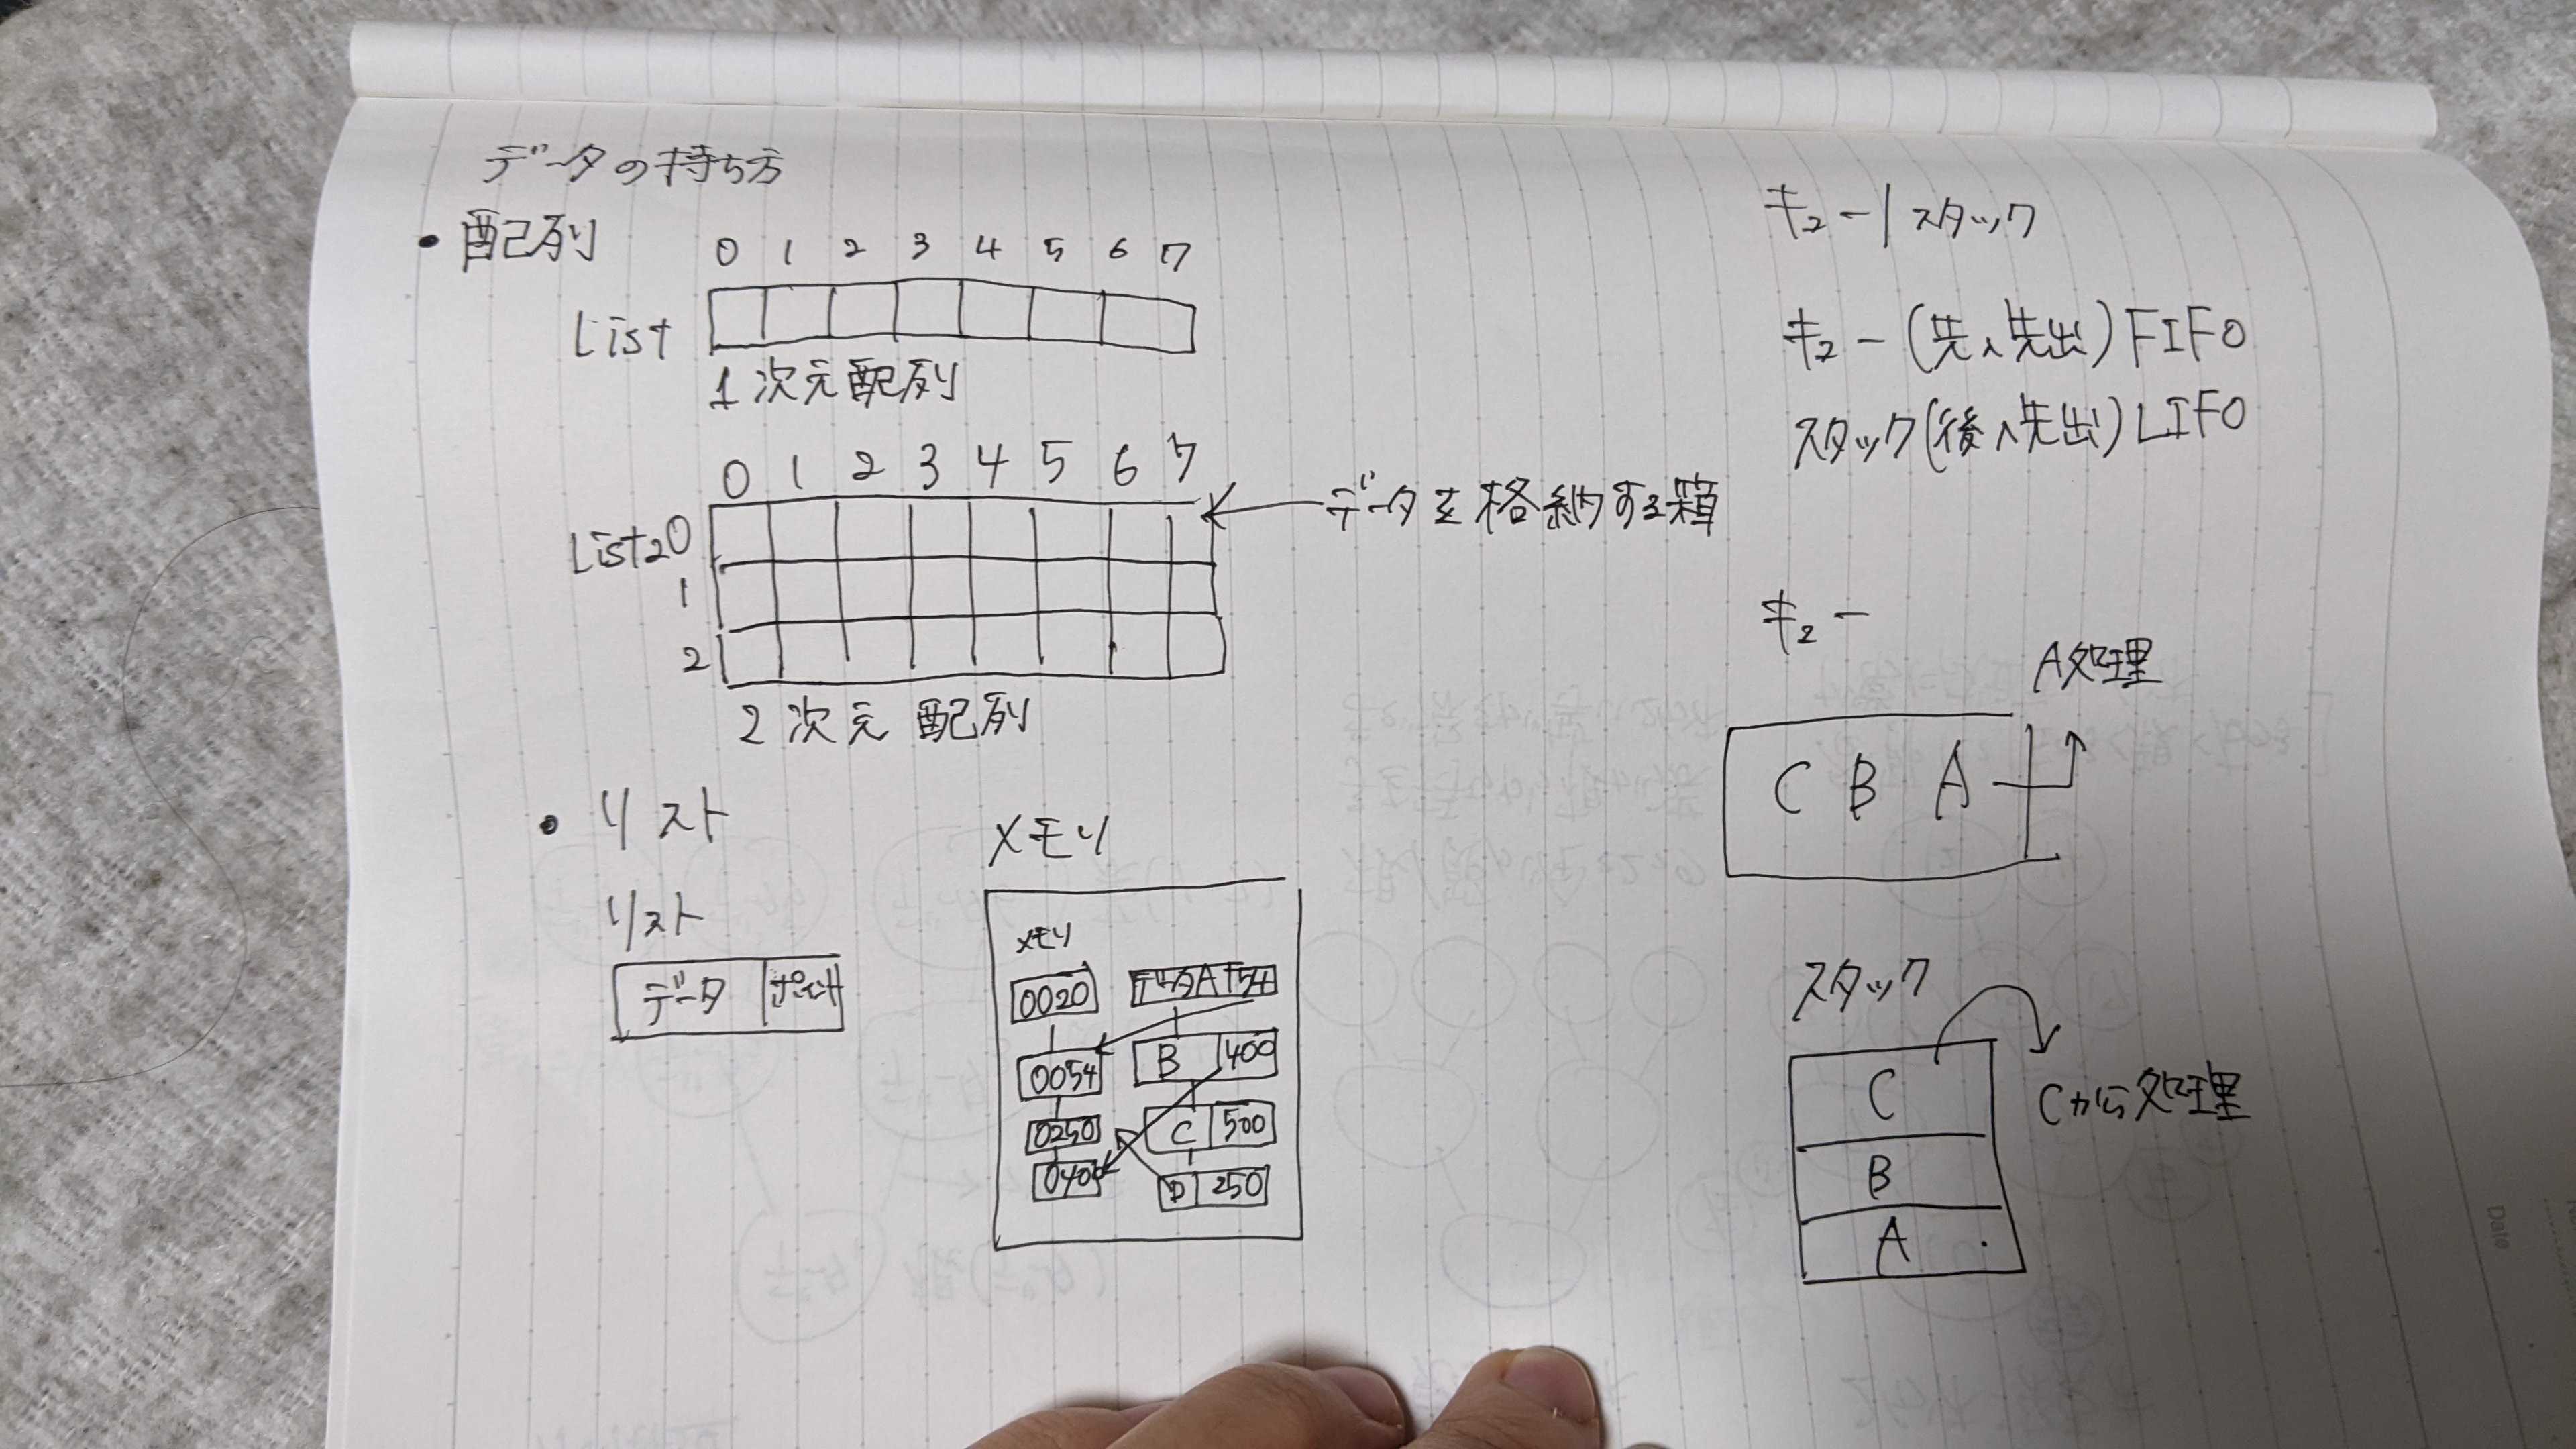 データの持ち方
・配列
0 1 2 3 4 5 6 7
List
1次元配列
0 1 2 3 4 5 6 7
List2 0
1
2
データを格納する箱
2次元配列
・リスト
リスト
データ
メモリ
メモリ
0020
データA 54
0054
B 400
0250
C 500
040
D 250
キュー/スタック
キュー(先入先出)FIFO
スタック(後入先出)LIFO
キュー
A処理
C B A
スタック
C
Cから処理
B
A
Date